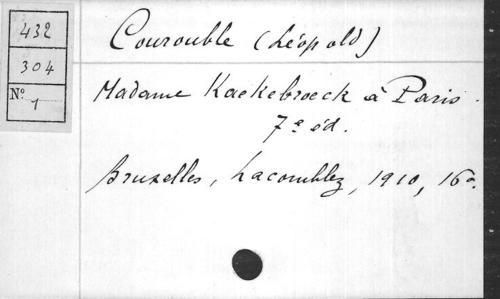 432
304
N° 1
Courouble (Léopold)
Madame Kaekebroeck à Paris.
7ª éd.
Bruxelles, Lacomblez, 1910, 16°.